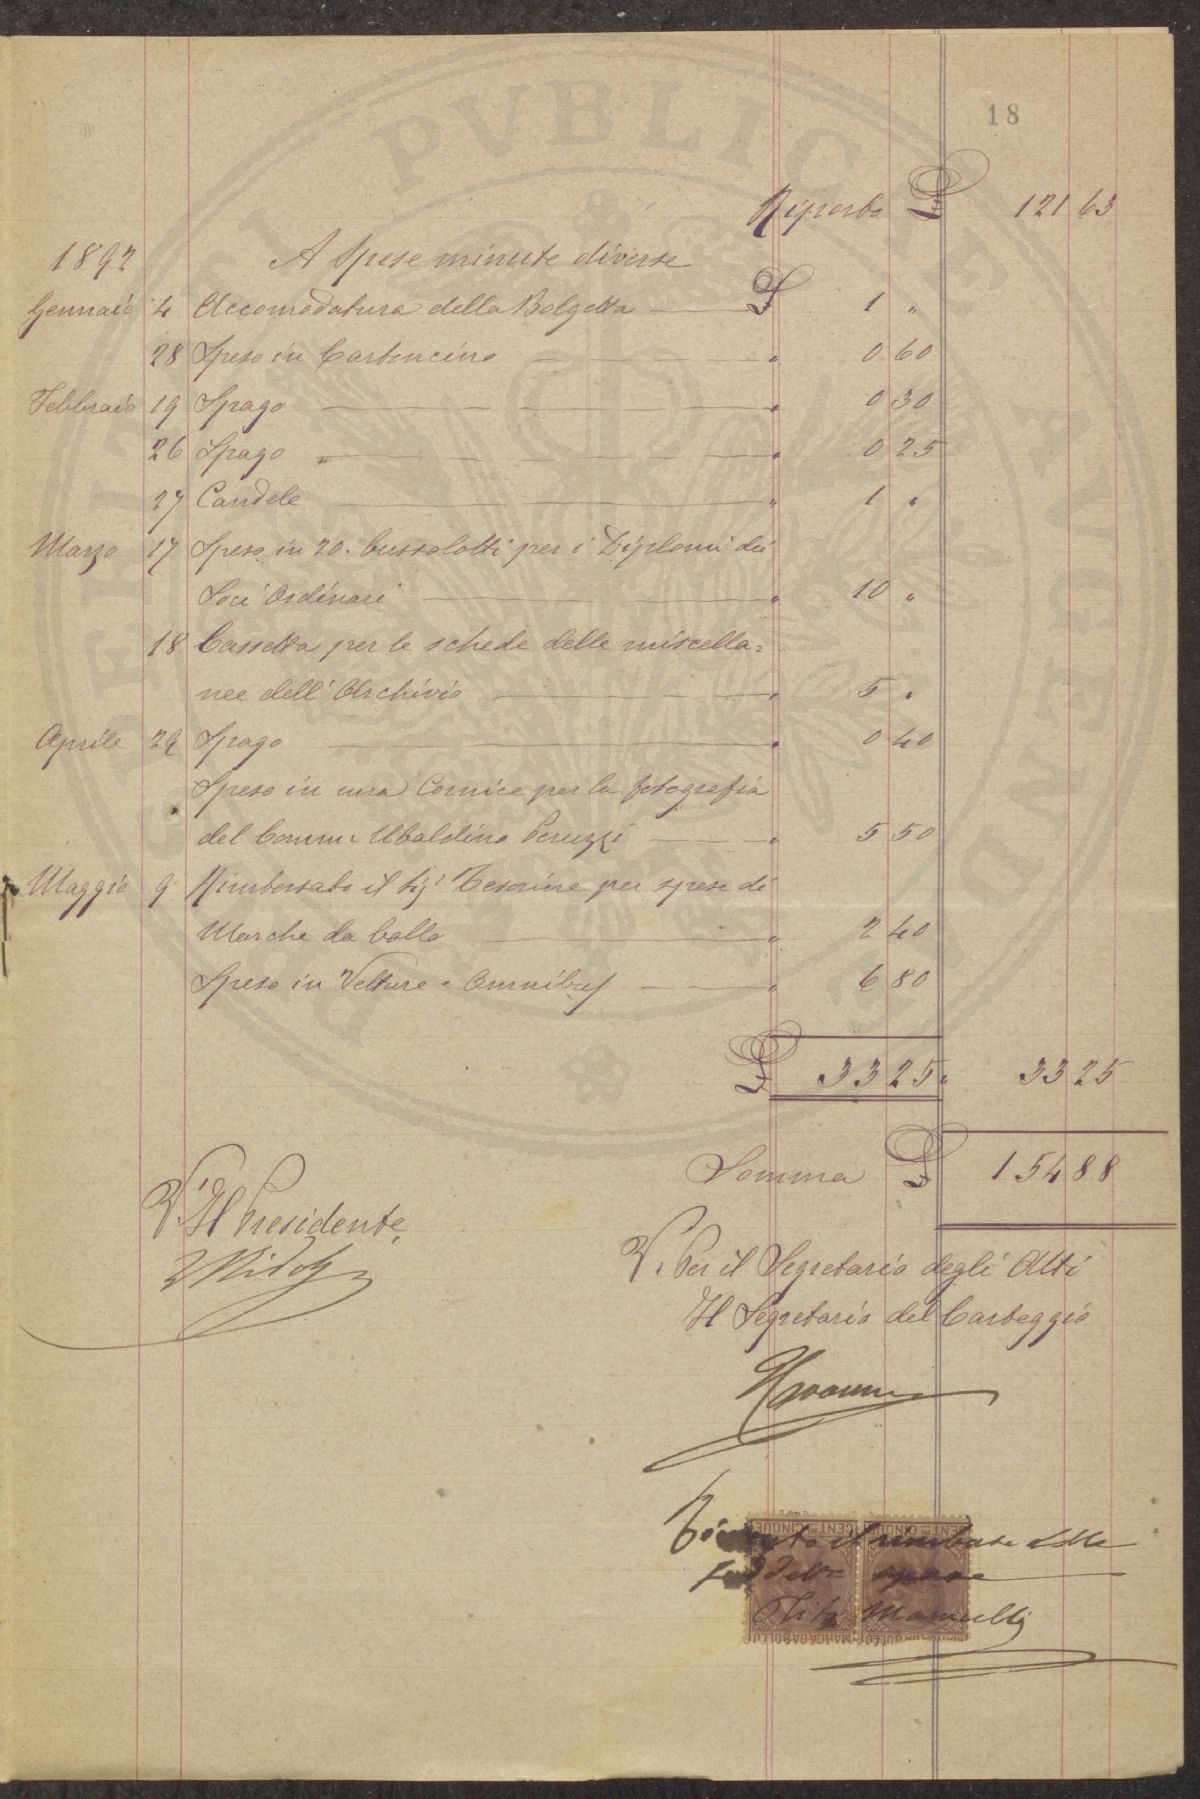 18
Riporto £ 121 63
1892 A Spese minute diverse
Gennaio 4 Accomodatura della Bolgetta £ 1 "
28 Speso in Cartoncino " 0 60
Febbraio 19 Spago " 0 30
26 Spago " 0 25
27 Candele " 1 "
Marzo 17 Speso in 20. bussolotti per i Diplomi dei
Soci Ordinari " 10 "
18 Cassetta per le schede delle miscella=
nee dell'Archivio " 5 "
Aprile 29 Spago " 0 40
Speso in una Cornice per la fotografia
del Comm: Ubaldino Peruzzi " 5 50
Maggio 9 Rimborsato il Sigr Tesoriere per spese di
Marche da bollo " 2 40
Speso in Vetture = Omnibus " 6 80
£ 33 25 " 33 25
Somma £ 154 88
V. Il Presidente
V. Per il Segretario degli Atti
Il Segretario del Carteggio
il rimborso delle
suddette spese
CENT.MI CINQUE CENT.MI CINQUE
MARCA DA BOLLO